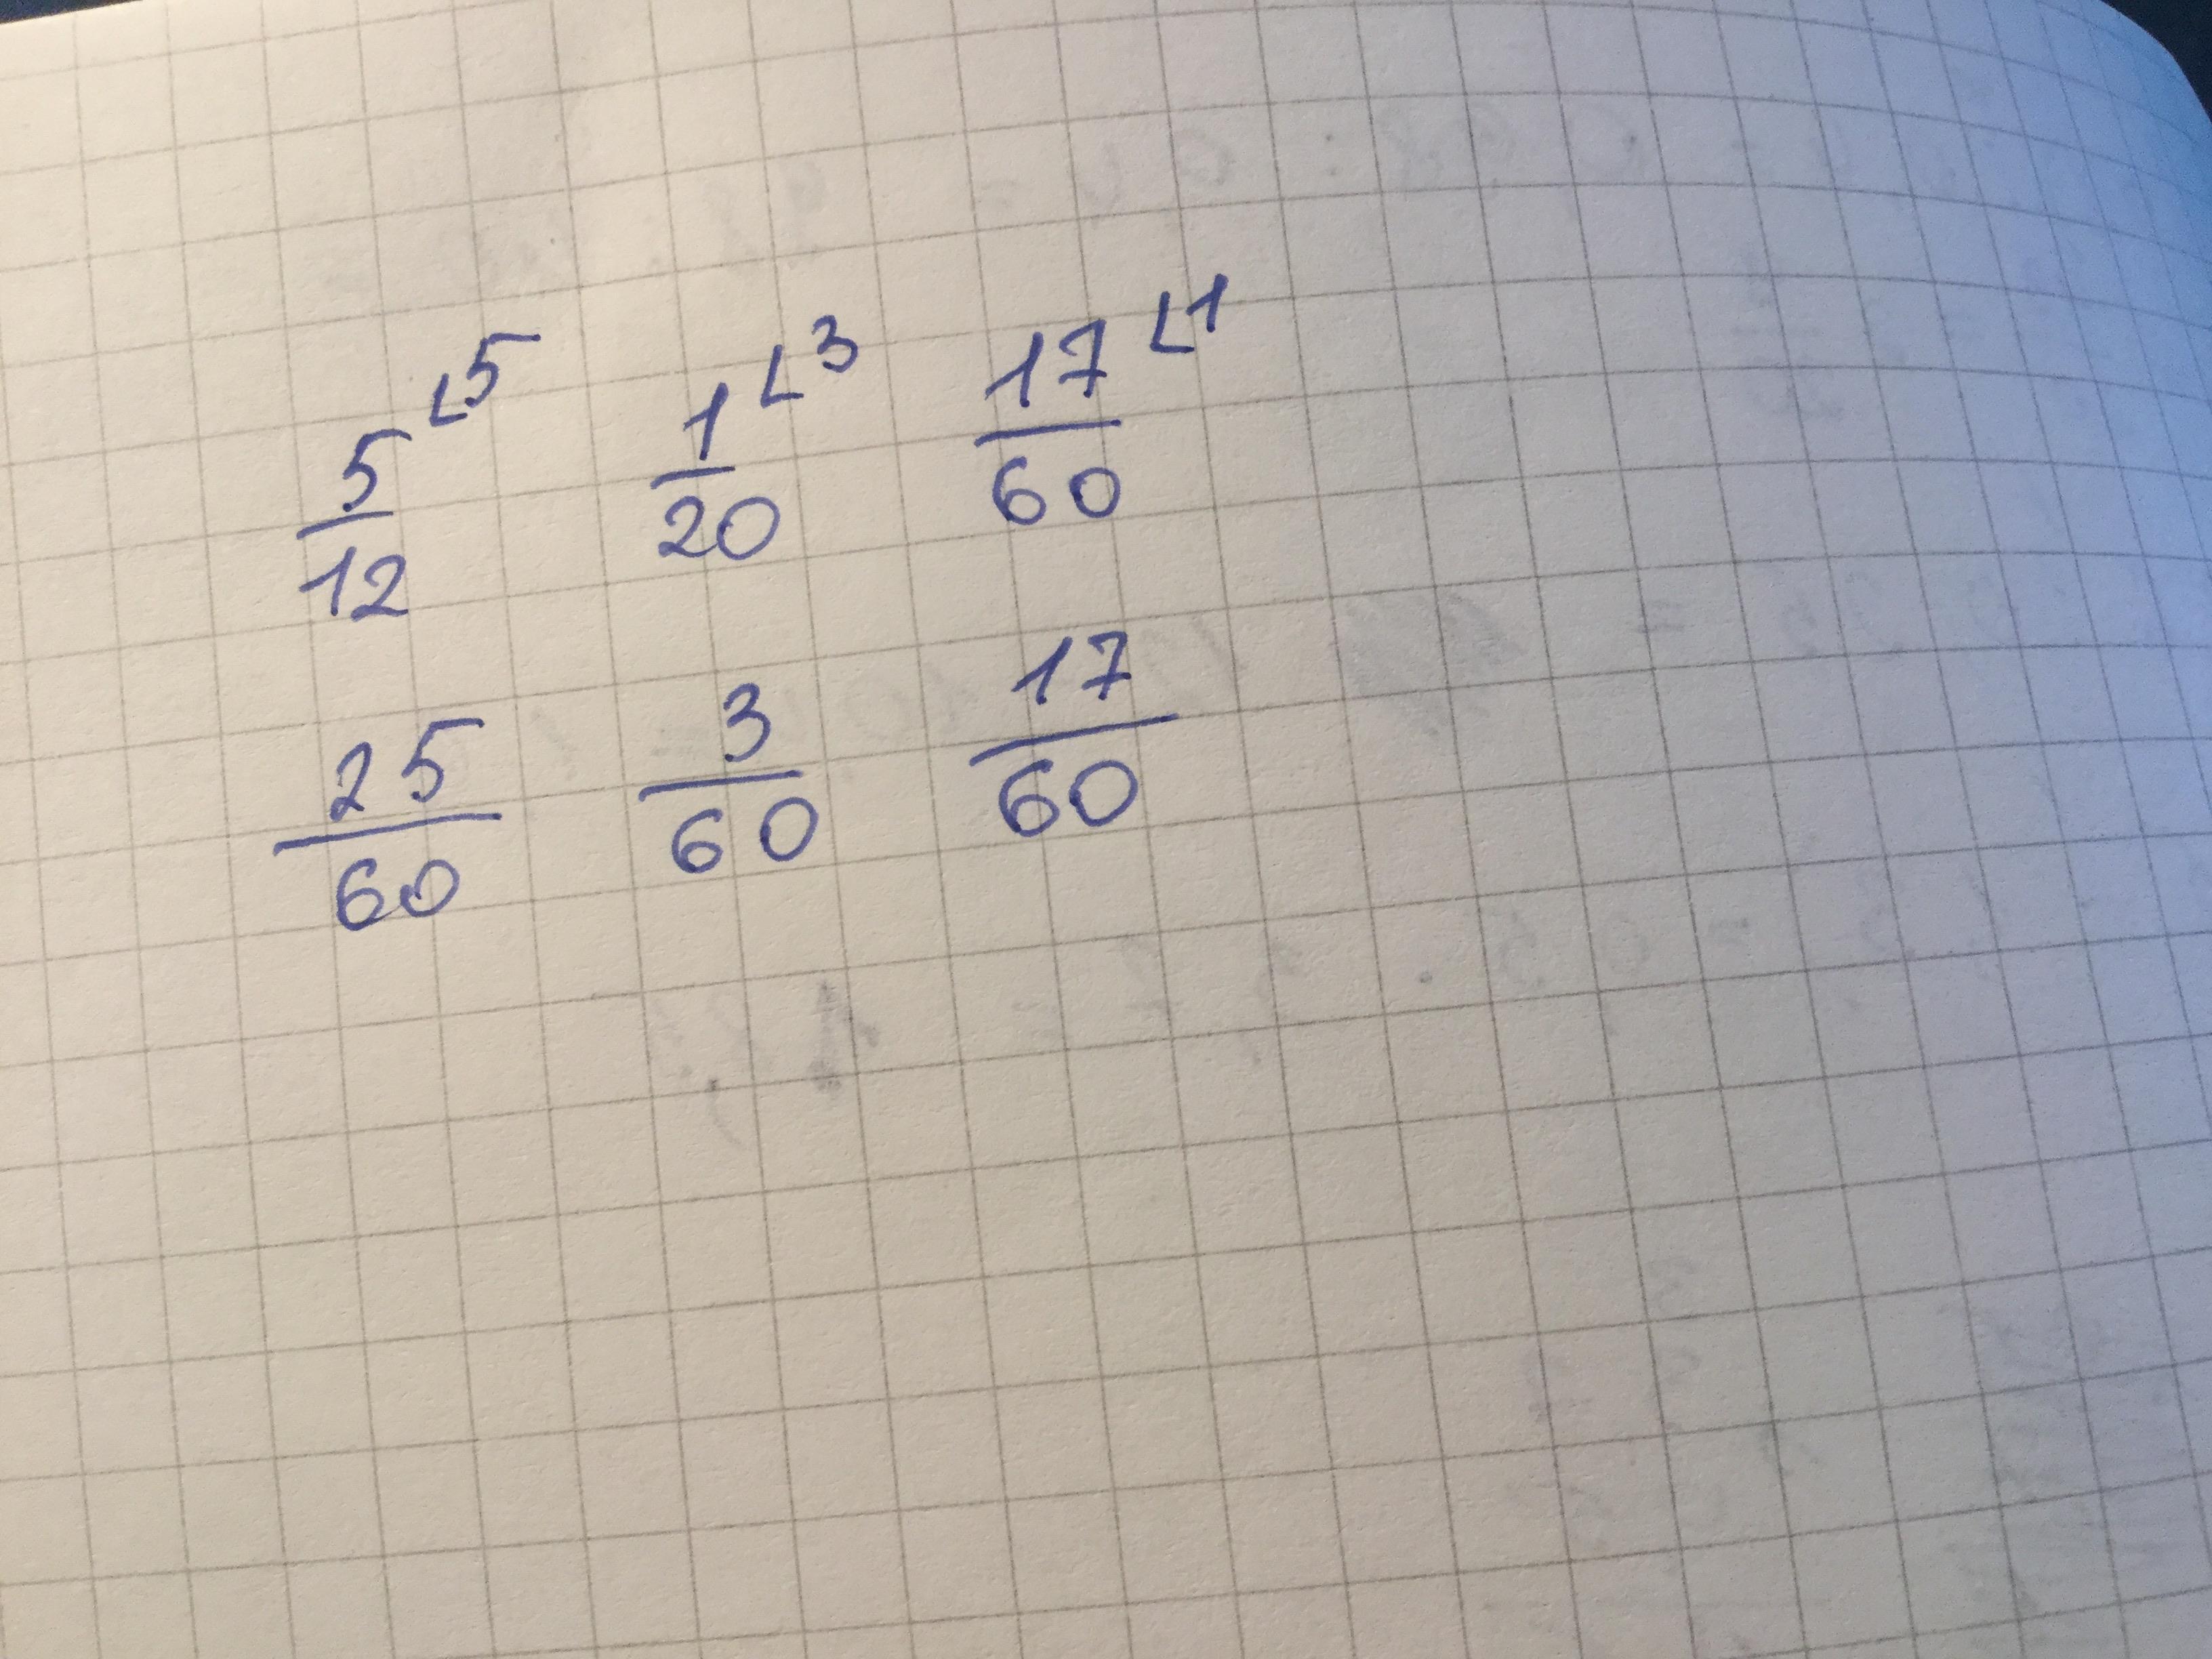 5/12 ∟5 1/20 ∟3 17/60 ∟1
25/60 3/60 17/60